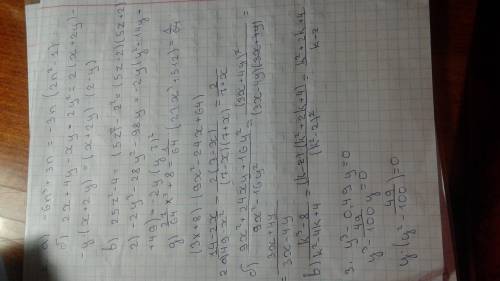 а) -6n³ + 3n = -3n (2n² - 1)
б) 2x + 4y - xy - 2y² = 2(x + 2y) -
- y (x + 2y) = (x + 2y) (2 - y)
в) 25z² - 4 = (5z)² - 2² = (5z - 2)(5z + 2)
г) -2y³ - 28y² - 98y = -2y(y² + 14y +
+ 49) = -2y (y + 7)²
д) 27/64 x³ + 8 = 1/64 · (27x³ + 512) = 1/64 ·
(3x + 8) · (9x² - 24x + 64)
2. а) 14 - 2x / 49 - x² = 2(7 - x) / (7 - x)(7 + x) = 2 / 7 + x
б) 9x² + 24xy + 16y² / 9x² - 16y² = (3x + 4y)² / (3x - 4y)(3x + 4y) =
= 3x + 4y / 3x - 4y
в) k³ - 8 / k² - 4k + 4 = (k - 2)(k² + 2k + 4) / (k - 2)² = k² + 2k + 4 / k - 2
3. y³ - 0,49y = 0
y³ - 49/100 y = 0
y · (y² - 49/100) = 0